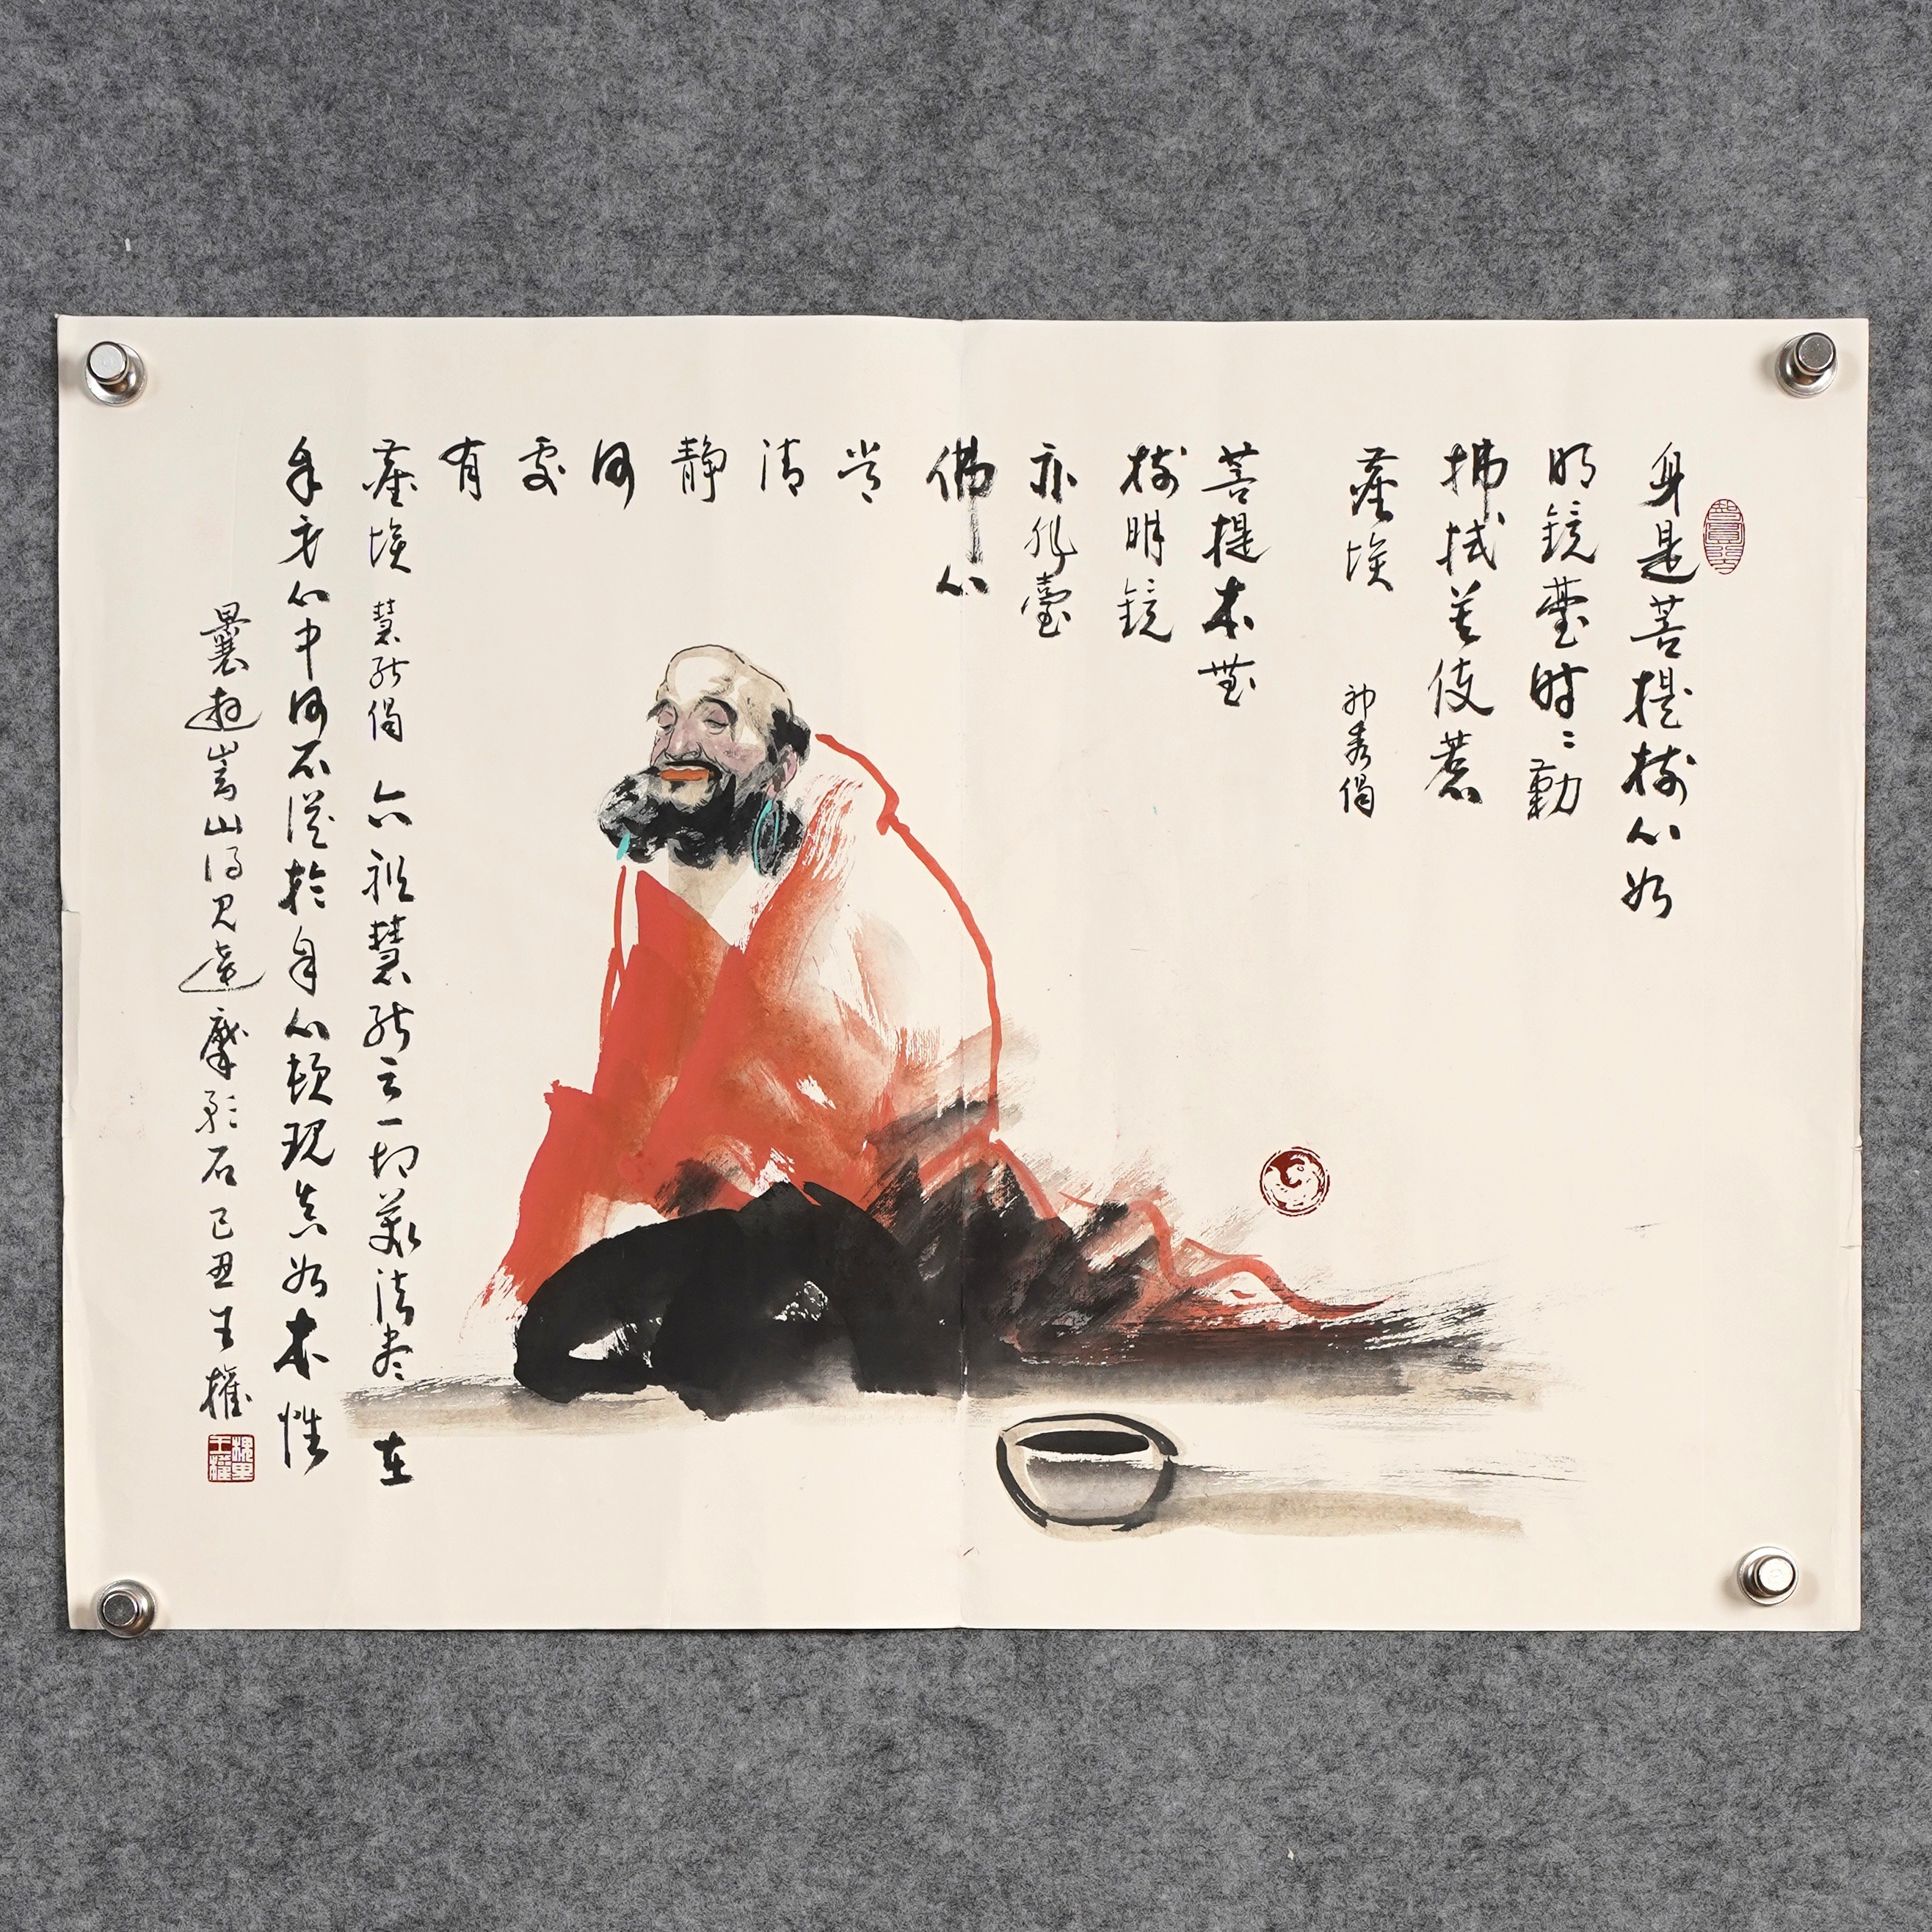 身是菩提樹心如
明鏡臺時〻勤
拂拭莫使惹
塵埃 神秀偈
菩提本無
樹明鏡
亦非臺
佛心
常
清
静
何
處
有
塵埃 慧能偈 六祖慧能云一切萬法盡在
自身心中何不從於自心頓現真如本性
曩遊嵩山得見達摩影石己丑王權
槐里王權